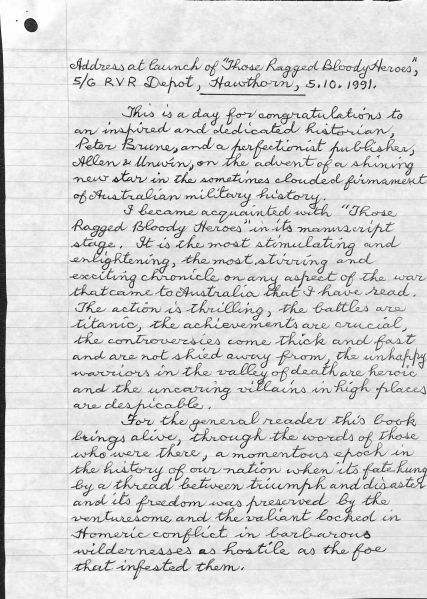 Address at launch of "Those Ragged Bloody Heroes",
5/6 RVR Depot, Hawthorn, 5.10.1991.
This is a day for congratulations to
an inspired and dedicated historian,
Peter Brune, and a perfectionist publisher,
Allen & Unwin, on the advent of a shining
new star in the sometimes clouded firmament
of Australian military history.
I became acquainted with "Those
Ragged Bloody Heroes" in its manuscript
stage. It is the most stimulating and
enlightening, the most stirring and
exciting chronicle on any aspect of the war
that came to Australia that I have read.
The action is thrilling, the battles are
titanic, the achievements are crucial,
the controversies come thick and fast
and are not shied away from, the unhappy
warriors in the valley of death are heroic
and the uncaring villains in high places
are despicable.
For the general reader this book
brings alive, through the words of those
who were there, a momentous epoch in
the history of our nation when its fate hung
by a thread between triumph and disaster
and its freedom was preserved by the
venturesome and the valiant locked in
Homeric conflict in barbarous
wildernesses as hostile as the foe
that infested them.